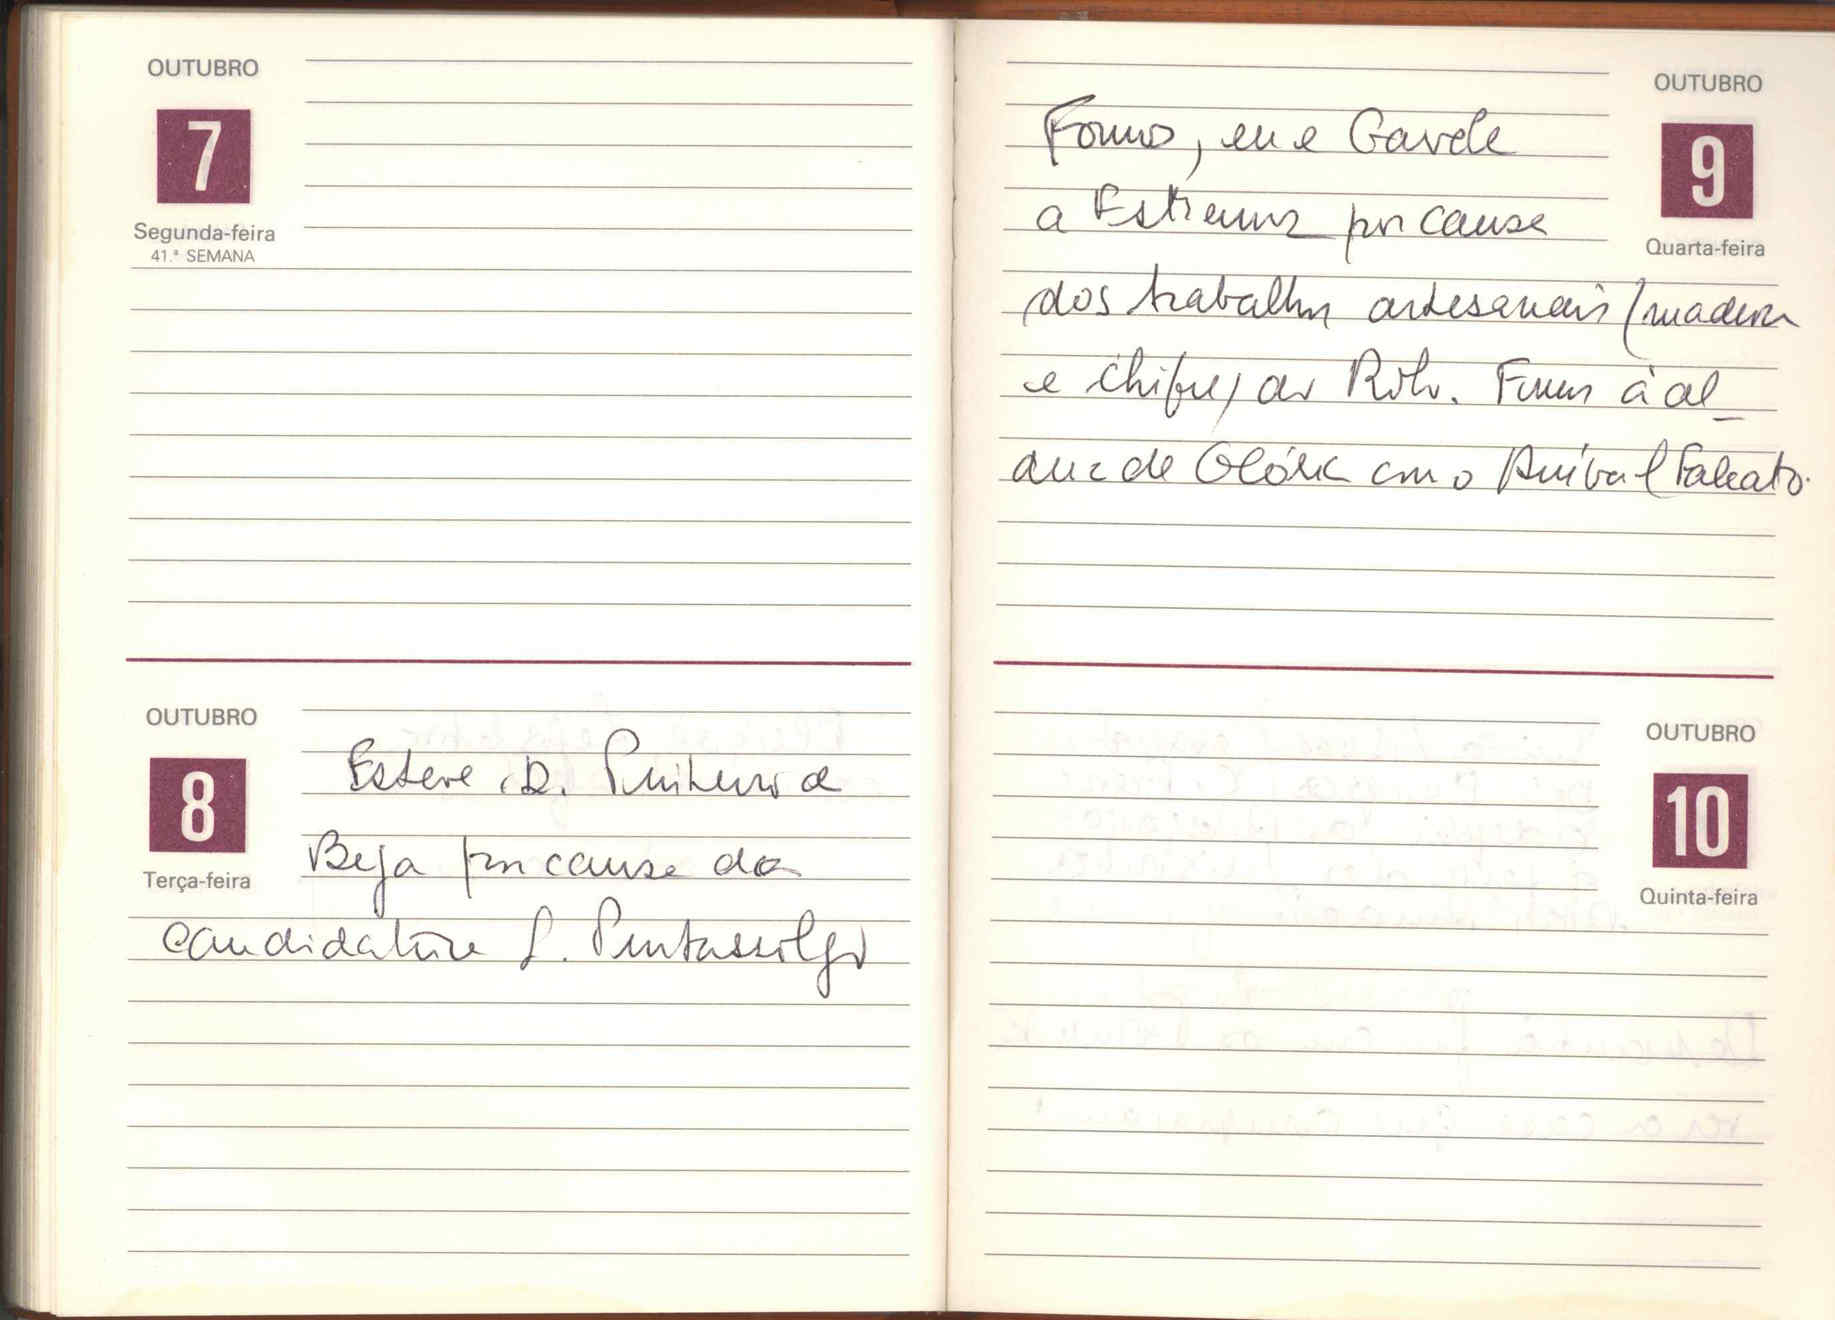 OUTUBRO
7
Segunda-feira
41.ª SEMANA
OUTUBRO
8
Terça-feira
Esteve cá. Pinheiro a
Beja por causa da
candidatura L. Pintassilgo
OUTUBRO
9
Quarta-feira
Fomos, eu e Gavela
a Estremoz por causa
dos trabalhos artesanais (madeira
e chifre) do Rolo. Fomos à al_
dua de Glória com o Aníbal Falcato.
OUTUBRO
10
Quinta-feira